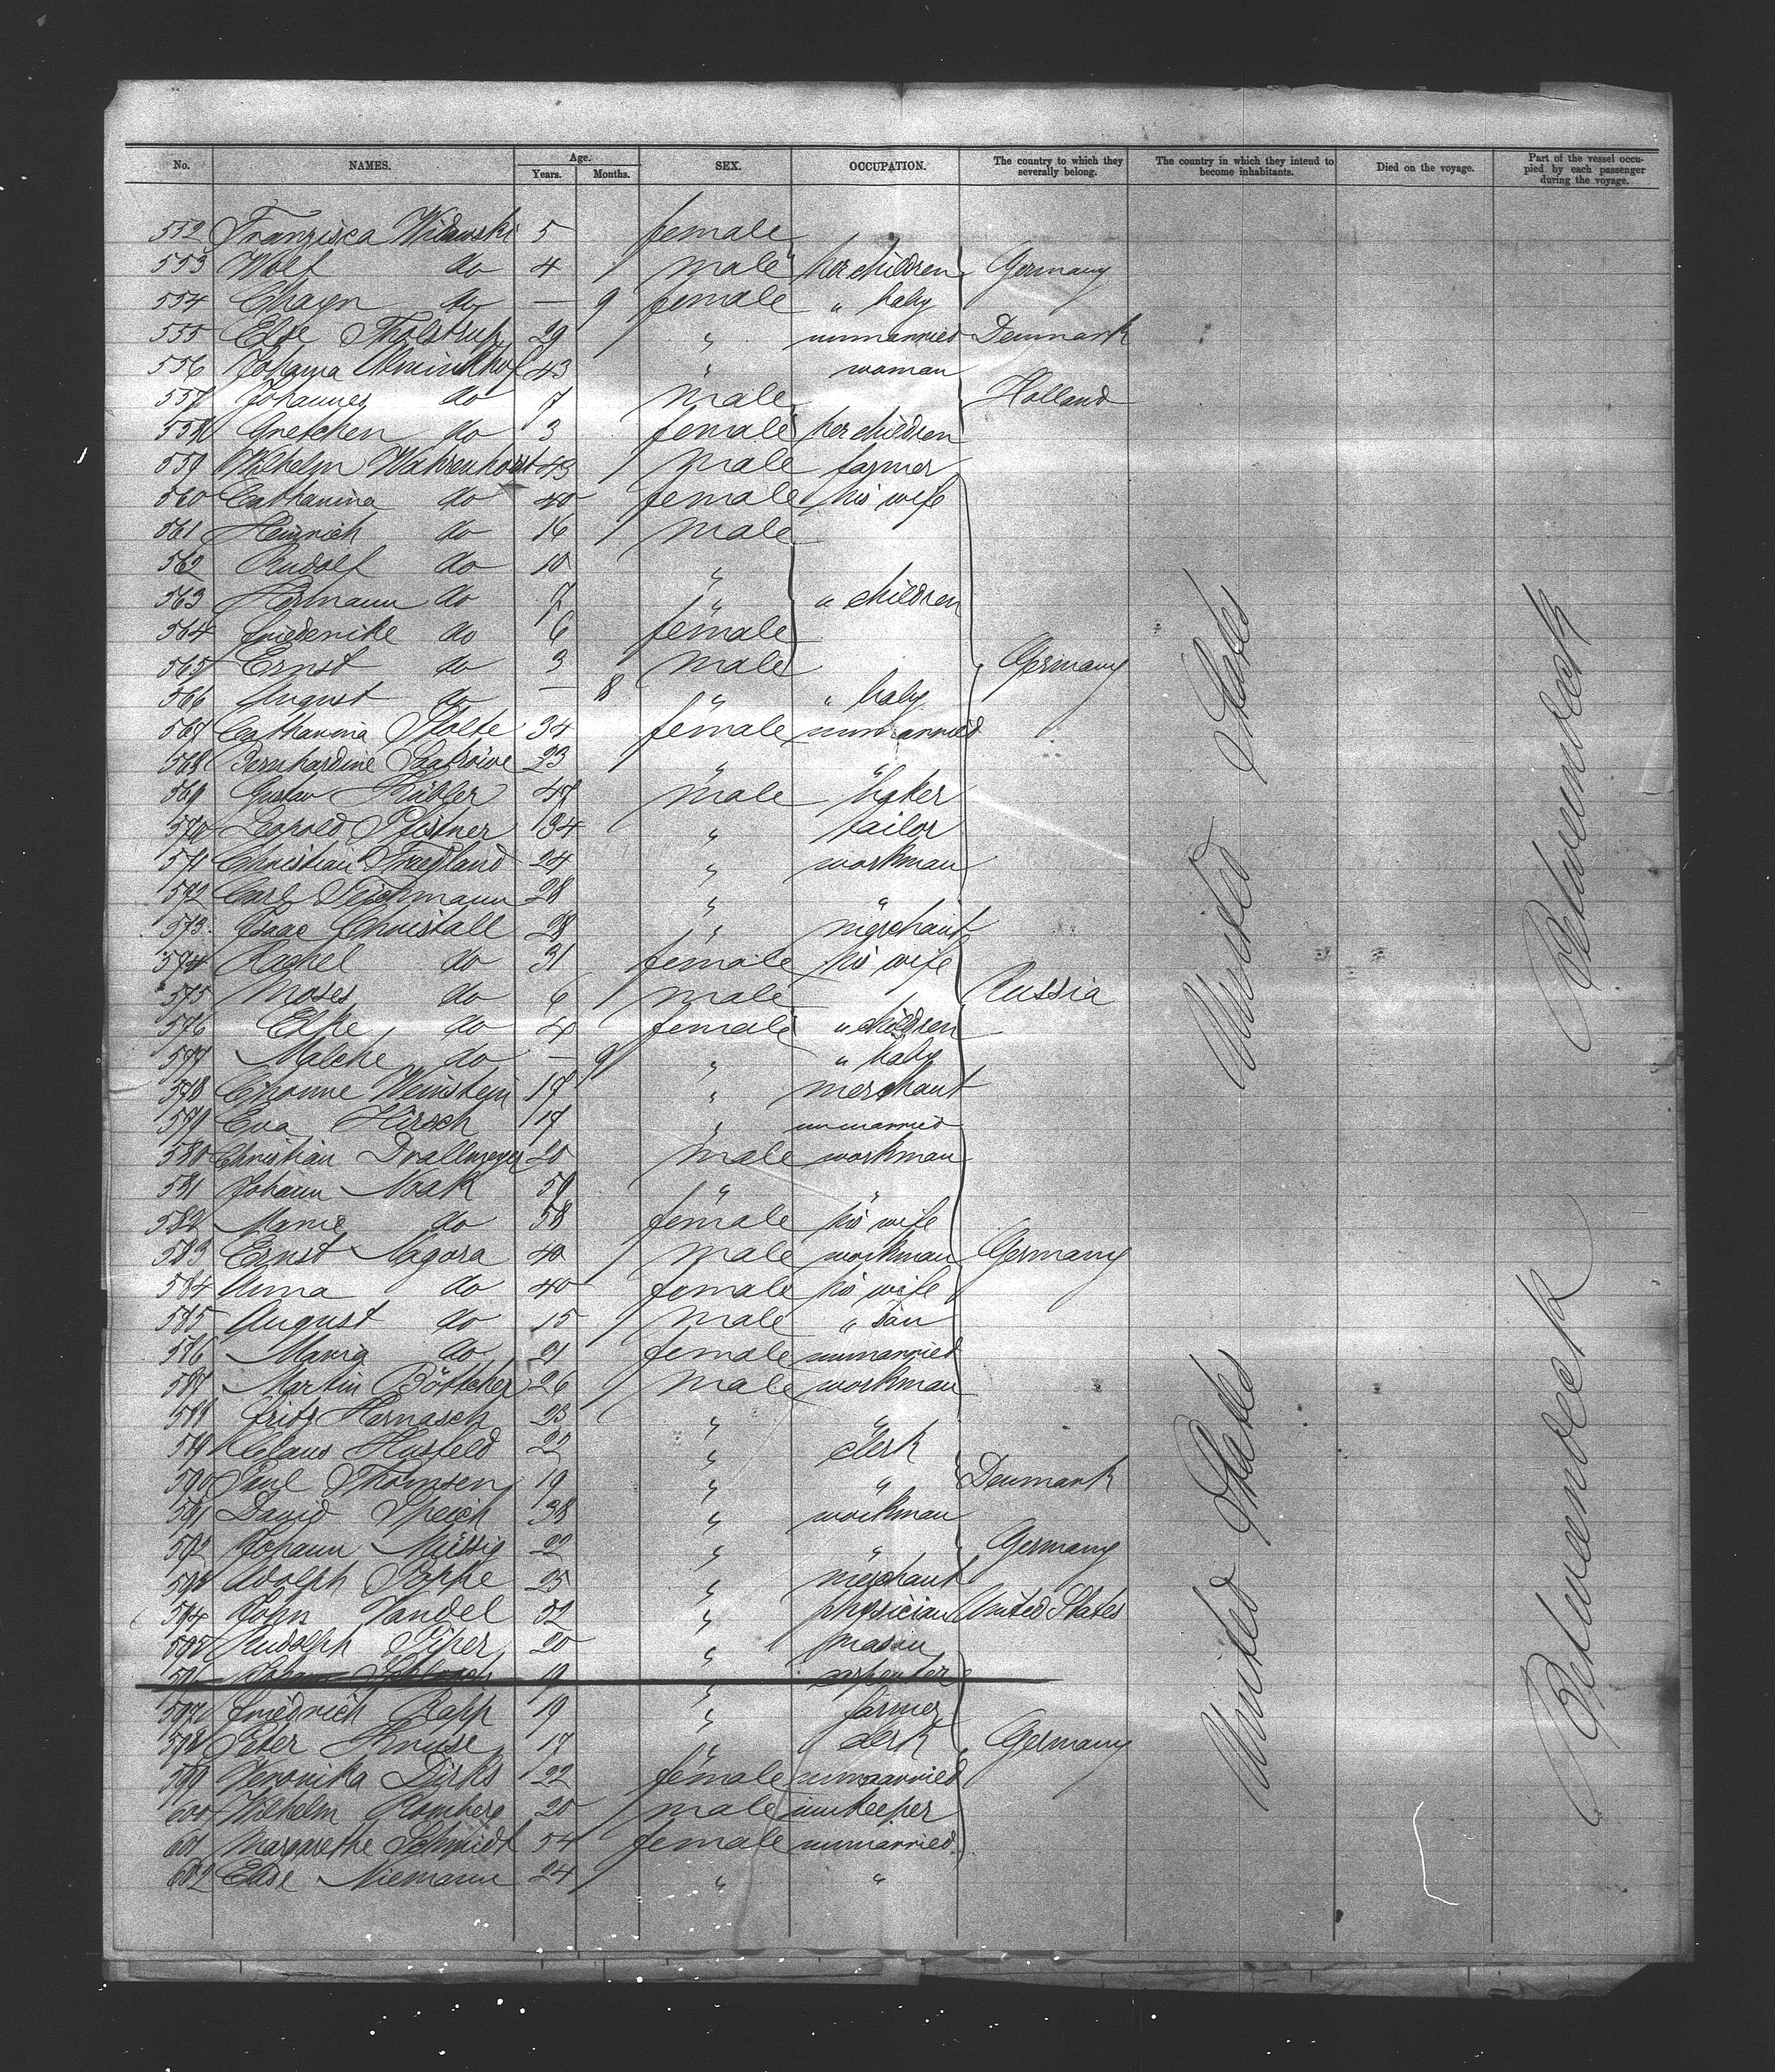 No. NAMES. Age. Years. Months. SEX. OCCUPATION. The country to which they severally belong. The country in which they intend to become inhabitants. Died on the voyage. Part of the vessel occupied by each passenger during the voyage.
552 Franzisca 5 female
553 Wolf do 4 male her children Germany
554 do — 9 female " baby
555 Else Tholstrup 29 " unmarried Denmark
556 Johanna 43 " woman
557 Johannes do 7 male Holland
558 Gretchen do 3 female her children
559 Wilhelm Wahrenhorst 43 male farmer
560 Catharina do 40 female his wife
561 Heinrich do 16 male
562 Rudolf do 10 "
563 Hermann do 7 " " children
564 Friederike do 6 female
565 Ernst do 3 male Germany
566 August do — 8 " " baby
567 Catharina Stolte 34 female unmarried
568 Bernhardine 23 " "
569 Gustav Kübler 47 male baker
570 Leopold Pfistner 34 " tailor
571 Christian 24 " workman
572 Carl Teichmann 28 " "
573 Isaac Christall 28 " merchant
574 Rachel do 31 female his wife
575 Moses do 6 male Russia
576 Elke do 4 female " children
577 Malche do — 9 " " baby
578 Weinstein 17 " merchant
579 Eva Hirsch 17 " unmarried
580 Christian Drallmeyer 20 male workman
581 Johann Noak 59 " "
582 Marie do 58 female his wife
583 Ernst Nagora 40 male workman Germany
584 Anna do 40 female his wife
585 August do 15 male " son
586 Maria do 21 female unmarried
587 Martin Böttcher 26 male workman
588 Fritz Harnasch 23 " "
589 Claus Husfeld 22 " clerk
590 Paul Thomsen 19 " " Denmark
591 David Speich 38 " workman
592 Johann Müssig 22 " " Germany
593 Adolph Poppe 25 " merchant
594 John Vandel 52 " physician United States
595 Rudolph Piper 20 " mason
596 Johann 19 " carpenter
597 Friedrich Rapp 19 " farmer
598 Peter Kruse 17 " clerk Germany
599 Veronika Dirks 22 female unmarried
600 Wilhelm Romberg 20 male innkeeper
601 Margarethe Schmidt 54 female unmarried
602 Elise Niemann 24 " "
United States
United States
Betweendeck
Betweendeck